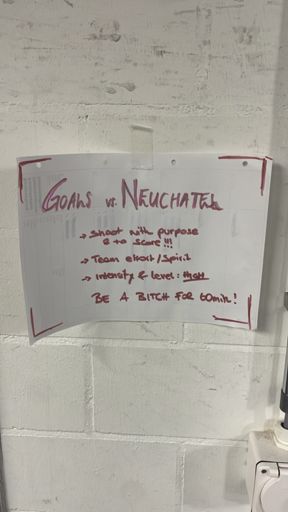 GOALS vs. NEUCHATEL
→ Shoot with purpose
& to score!!!
→ Team effort/spirit
→ Intensity & level: HIGH
BE A BITCH FOR 60min!